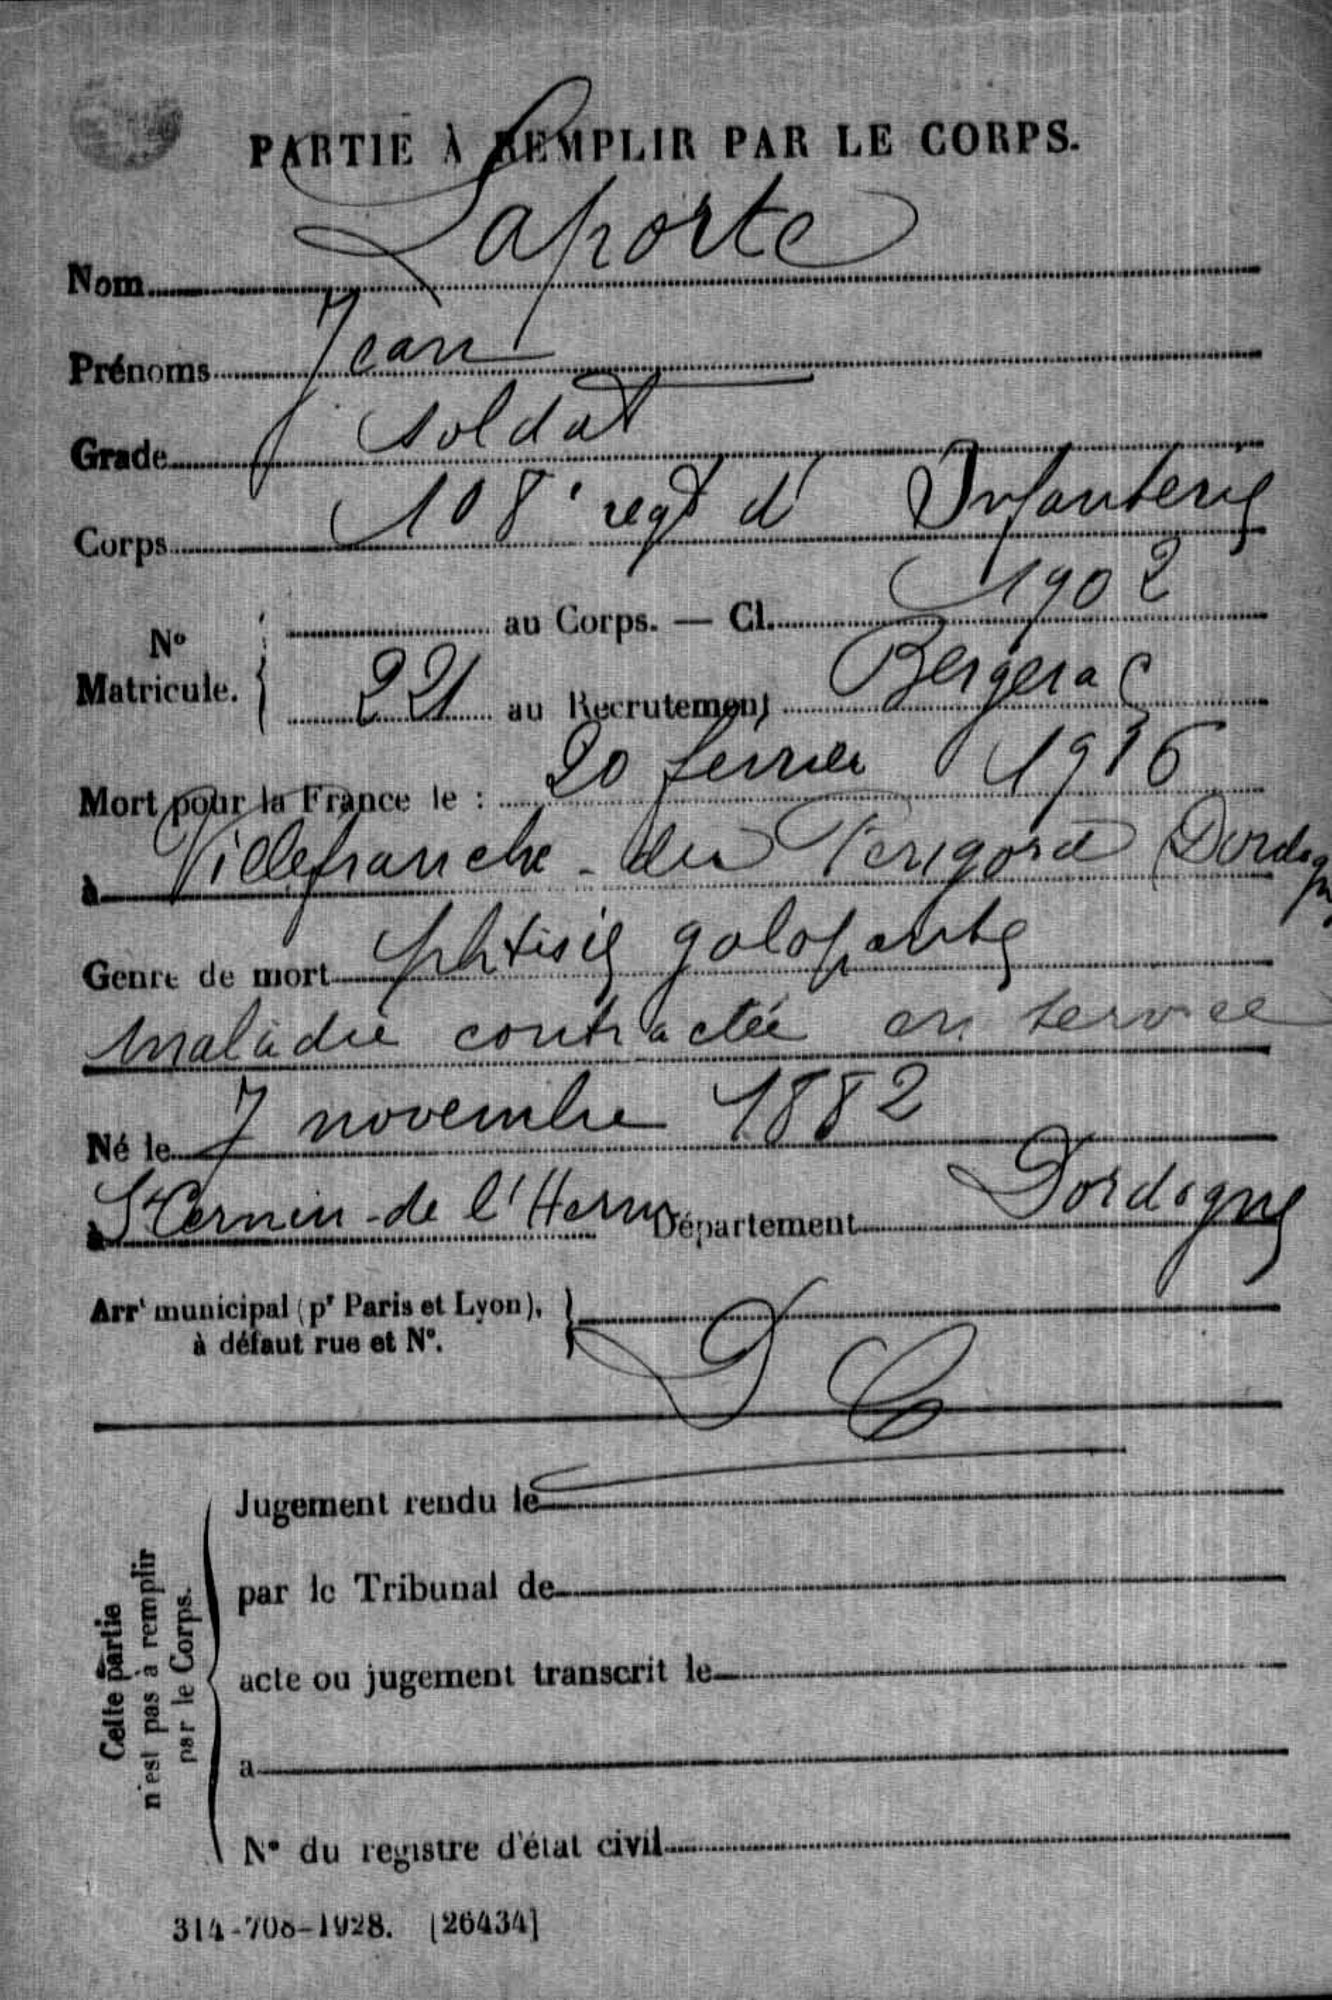 PARTIE À REMPLIR PAR LE CORPS.
Nom Laporte
Prénoms Jean
Grade soldat
Corps 108e regt d' Infanterie
No Matricule. { au Corps. — Cl. 1902
221 au Recrutement Bergerac
Mort pour la France le : 20 fevrier 1916
à Villefranche-du Perigord (Dordogne
Genre de mort phtisie galopante
maladie contractée en service
Né le 7 novembre 1882
à St Cernin-de l'Herm Département Dordogne
Arrt municipal (pr Paris et Lyon), }
à défaut rue et No.
Cette partie
n'est pas à remplir
par le Corps.
Jugement rendu le
par le Tribunal de
acte ou jugement transcrit le
a
No du registre d'état civil
314-708-1928. [26434]